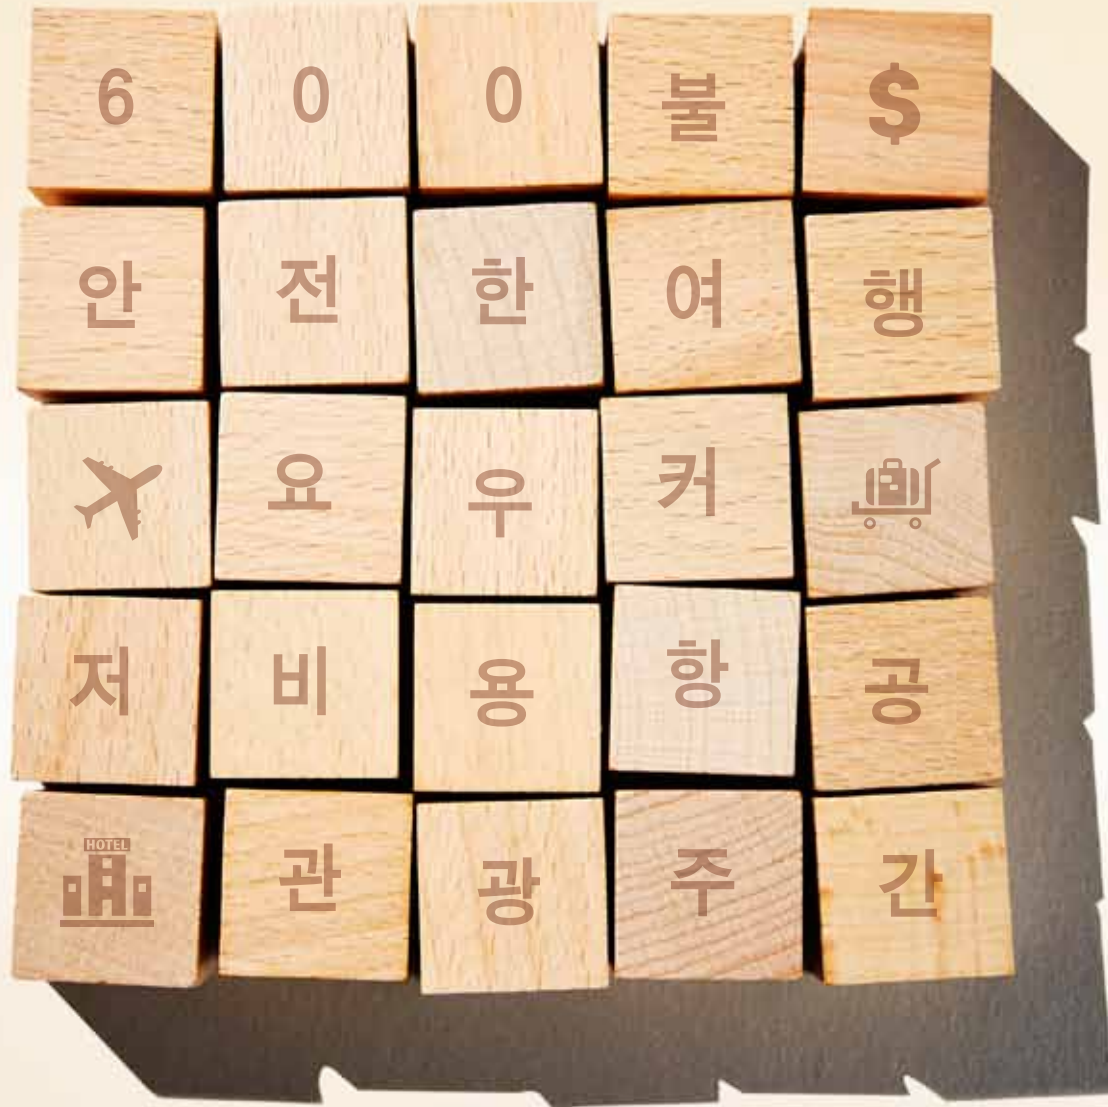 600불$
안전한여행
요우커
저비용항공
HOTEL
관광주간